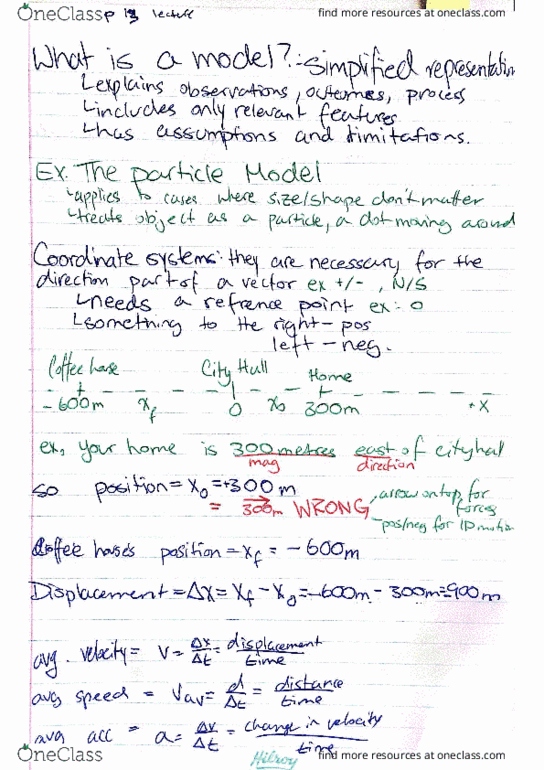 OneClass p 13 lecture
find more resources at oneclass.com
What is a model? - simplified representation
↳explains observations, outcomes, process
↳includes only relevant features
↳has assumptions and limitations.
Ex. The particle Model
↳applies to cases where size/shape don't matter
↳treats object as a particle, a dot moving around
Coordinate systems: they are necessary for the
direction part of a vector ex +/- , N/S
↳needs a refrence point ex: 0
↳something to the right - pos
left - neg.
Coffee house City Hull Home
-600m xf 0 x0 300m +x
ex, your home is 300 metres east of city hall
mag direction
so position = x0 = +300m
= 300m WRONG
, arrow on top for
forces
- pos/neg for 1D motion
Coffee house's position = xf = -600m
Displacement = Δx = xf - x0 = -600m - 300m = -900m
avg. velocity = v = Δx/Δt = displacement/time
avg speed = vav = d/Δt = distance/time
avg acc = a = Δv/Δt = change in velocity/time
Hilroy
OneClass
find more resources at oneclass.com